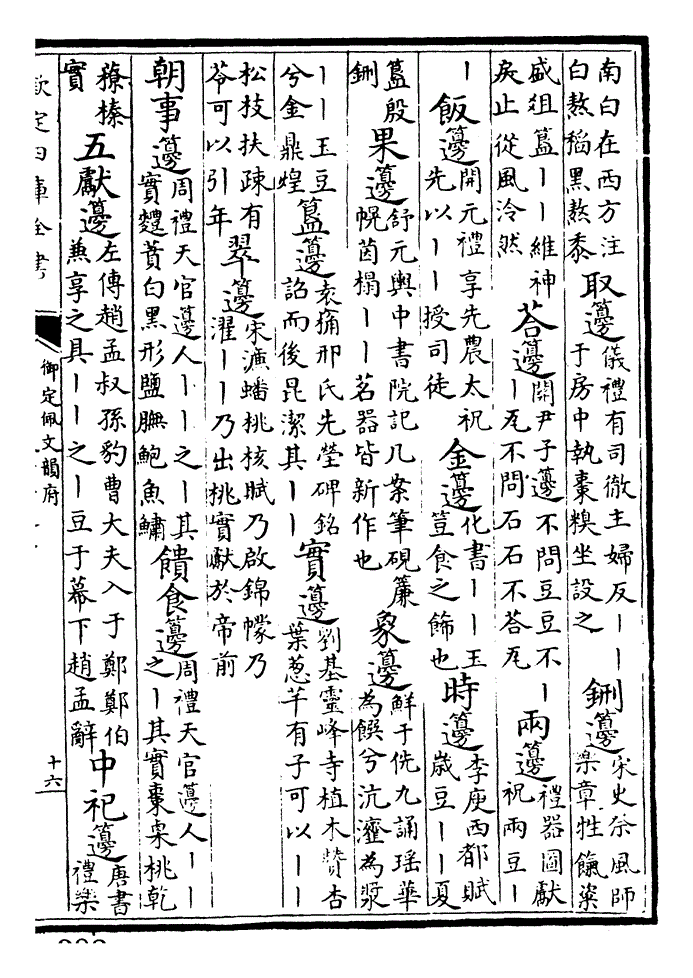 南白在西方注
白熬稻黑熬黍
取籩
儀禮有司徹主婦反丨丨
于房中執棗糗坐設之
鉶籩
宋史祭風師
樂章牲餼粢
盛俎簋丨丨維神
戾止從風泠然
荅籩
關尹子籩不問豆豆不
丨瓦不問石石不荅瓦
兩籩
禮器圖獻
祝兩豆丨
丨
飯籩
開元禮享先農太祝
先以丨丨授司徒
金籩
化書丨丨玉
豆食之飾也
時籩
李庚西都賦
歳豆丨丨夏
簋殷
鉶
果籩
舒元輿中書院記几案筆硯簾
幌茵榻丨丨茗器皆新作也
象籩
鮮于侁九誦瑶華
為饌兮沆瀣為漿
丨丨玉豆
兮金鼎煌
簋籩
袁桷邢氏先塋碑銘
詒而後昆潔其丨丨
實籩
劉基靈峰寺植木贊杏
葉葱芊有子可以丨丨
松枝扶疎有
苓可以引年
翠籩
宋濂蟠桃核賦乃啟錦幪乃
濯丨丨乃出桃實獻於帝前
朝事籩
周禮天官籩人丨丨之丨其
實麷蕡白黑形鹽膴鮑魚鱐
饋食籩
周禮天官籩人丨丨
之丨其實棗㮚桃乾
䕩榛
實
五獻籩
左傳趙孟叔孫豹曹大夫入于鄭鄭伯
兼享之具丨丨之丨豆于幕下趙孟辭
中祀籩
唐書
禮樂
欽定四庫全書
御定佩文韻府
十六